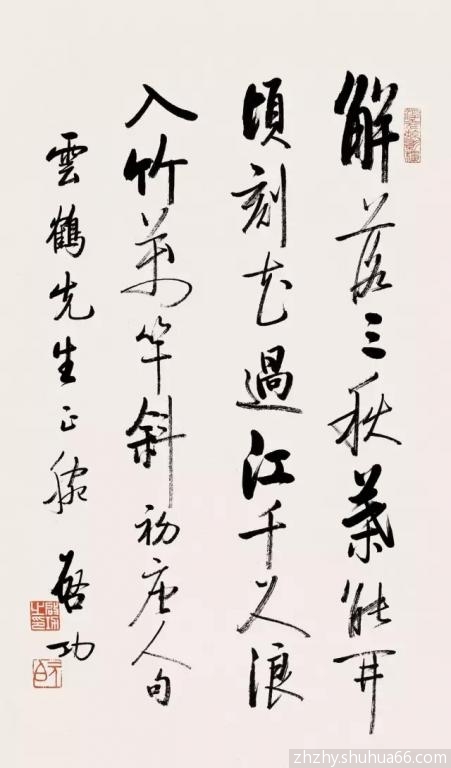 解落三秋葉能開
頃刻花過江千尺浪
入竹萬竿斜 初唐人句
雲鶴先生正腕 啓功
啓功之印
元白
zhzhy.shuhua66.com